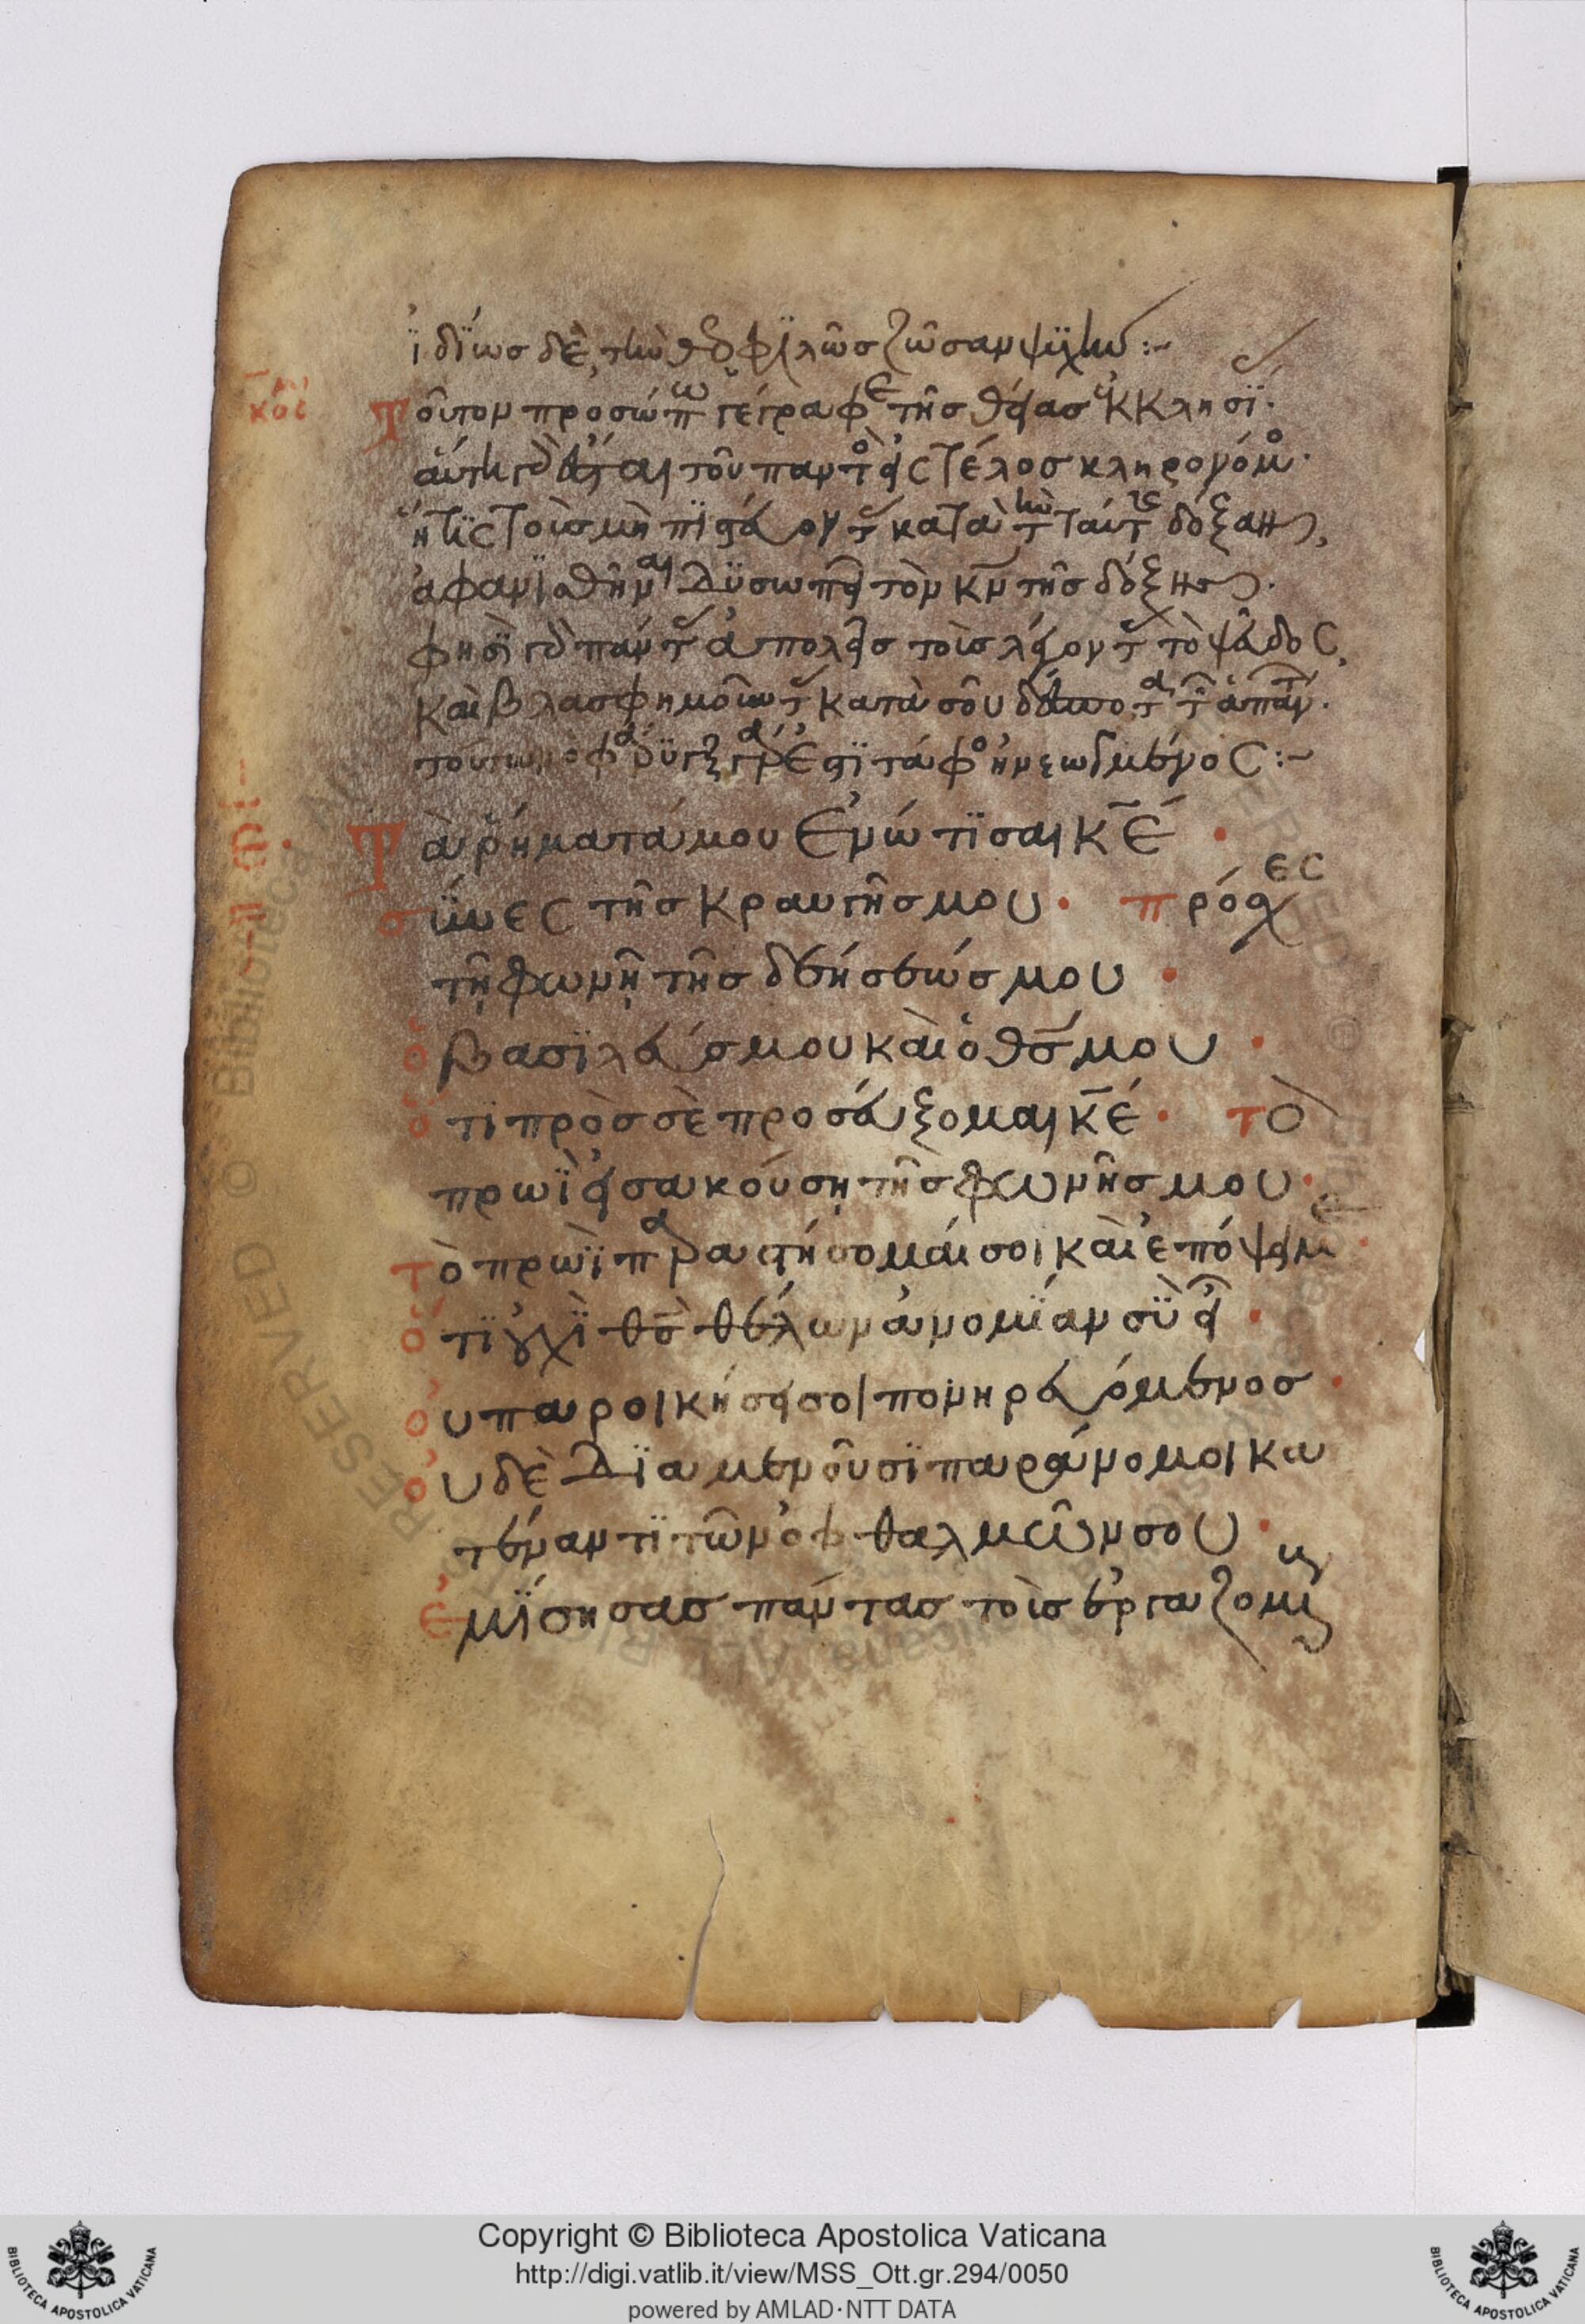 ἰδίως δὲ, τὴν θεοφιλῶς ζῶσαν ψυχήν :~
κός
Τοῦτον προσώπω γέγραφε τῆς θείας ἐκκλησί·
αὕτη γὰρ ἔσται τοῦ παντὸς τέλος κληρονόμο·
ἥτις τοῖς μὴ πιστεύουσι κατὰ τὴν ταύτης δόξαν,
ἀφανισθῆναι δυσωπεῖ τὸν κν τῆς δόξης.
φησὶ γὰρ πάντας ἀπολεῖς τοὺς λέγοντας τὸ ψεῦδος,
καὶ βλασφημοῦντας κατὰ σοῦ
τούτων ὁ φάρυγξ γὰρ ἐστὶ τάφος ἠνεωγμένος :~
Τὰ ῥήματά μου ἐνώτισαι κε
σύνες τῆς κραυγῆς μου· πρόσχες
τῇ φωνῇ τῆς δεήσεώς μου
ὁ βασιλεύς μου καὶ ὁ θς μου
ὅτι πρὸς σὲ προσεύξομαι κε· τὸ
πρωῒ εἰσακούσῃ τῆς φωνῆς μου·
τὸ πρωῒ παραστήσομαί σοι καὶ ἐπόψει με
ὅτι οὐχὶ θς θέλων ἀνομίαν σὺ εἶ
οὐ παροικήσει σοι πονηρευόμενος
οὐδὲ διαμενοῦσι παράνομοι κα
τέναντι τῶν ὀφθαλμῶν σου
ἐμίσησας πάντας τοὺς ἐργαζομένους
Copyright © Biblioteca Apostolica Vaticana
http://digi.vatlib.it/view/MSS_Ott.gr.294/0050
powered by AMLAD·NTT DATA